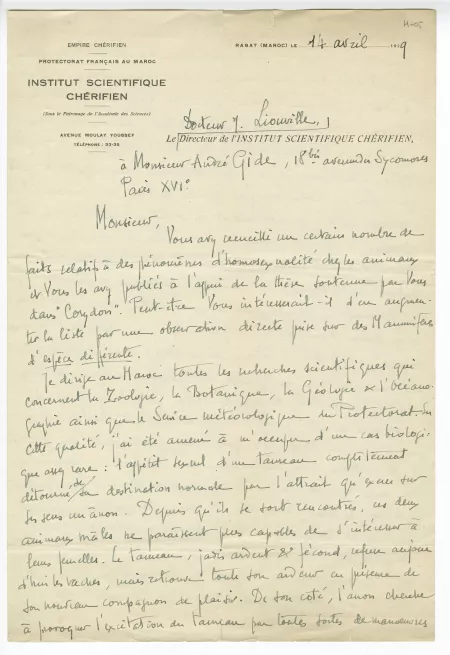 H-05
EMPIRE CHÉRIFIEN
PROTECTORAT FRANÇAIS AU MAROC
INSTITUT SCIENTIFIQUE
CHÉRIFIEN
(Sous le Patronage de l'Académie des Sciences)
AVENUE MOULAY YOUSSEF
TÉLÉPHONE : 23-36
RABAT (MAROC) LE 17 avril 19 9
Docteur J. Liouville,
Le Directeur de l'INSTITUT SCIENTIFIQUE CHÉRIFIEN,
à Monsieur André Gide, 18 bis avenue des Sycomores
Paris XVIº
Monsieur,
Vous avez recueilli un certain nombre de
faits relatifs à des phénomènes d'homosexualité chez les animaux
et Vous les avez publiés à l'appui de la thèse soutenue par Vous
dans "Corydon". Peut-être Vous intéresserait-il d'en augmen-
ter la liste par une observation directe prise sur des Mammifères
d'espèce différente.
Je dirige au Maroc toutes les recherches scientifiques qui
concernent la Zoologie, la Botanique, la Géologie & l'Océano-
graphie ainsi que le Service météorologique du Protectorat. En
cette qualité, j'ai été amené à m'occuper d'un cas biologi-
que assez rare : l'appétit sexuel d'un taureau complètement
détourné de sa destination normale par l'attrait qu'exerce sur
ses sens un ânon. Depuis qu'ils se sont rencontrés, ces deux
animaux mâles ne paraissent plus capables de s'intéresser à
leurs femelles. Le taureau, jadis ardent & fécond, refuse aujour-
d'hui les vaches, mais retrouve toute son ardeur en présence de
son nouveau compagnon de plaisir. De son côté, l'ânon cherche
à provoquer l'excitation du taureau par toutes sortes de manoeuvres